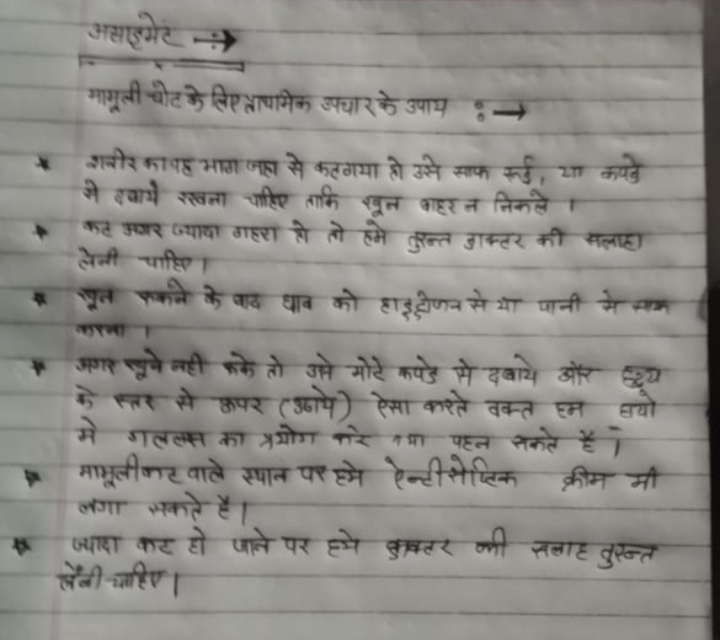 असाइमेंट →
मामूली चोट के लिए प्राथमिक उपचार के उपाय :→
* शरीर का वह भाग जहा से कट गया हो उसे साफ रूई, या कपडे
से दबाये रखना चाहिए ताकि खून बाहर न निकले ।
* कट अगर ज्यादा गहरा हो तो हमे तुरन्त डाक्टर की सलाहा
लेनी चाहिए।
* खून रूकने के बाद घाव को हाइड्रोजन से या पानी से साफ
करना ।
* अगर खून नही रूके तो उसे मोटे कपडे से दबाये और ह्रदय
के स्तर से ऊपर (उठाये) ऐसा करते वक्त हम हाथो
मे गललस का प्रयोग करे तथा पहन सकते है ।
* मामूली कट वाले स्थान पर हमे ऐन्टीसेप्टिक क्रीम भी
लगा सकते है।
* ज्यादा कट हो जाने पर हमे डाक्टर की सलाह तुरन्त
लेनी चाहिए।